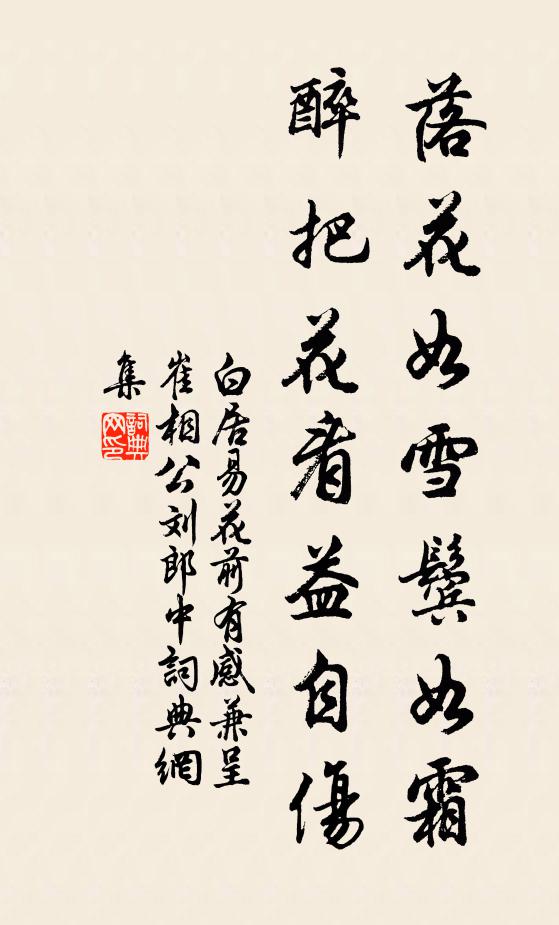 落花如雪鬓如霜
醉把花看益自傷
白居易花前有感兼呈
崔相公刘郎中詞典網
集
詞典
网印